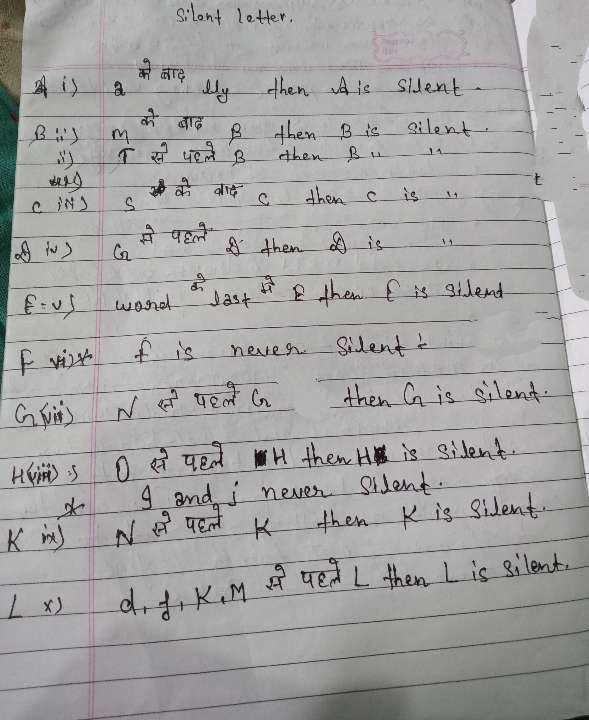 Silent letter.
A i) a के बाद lly then A is silent.
B ii) M के बाद B then B is silent.
ii) T से पहले B then B " "
C iii) S के बाद C then C is "
D iv) G से पहले D then D is "
E=v) word के last में E then E is silent
F vi) f is never silent
G(vii) N से पहले G then G is silent.
H(viii) :) O से पहले H then H is silent.
* I and j never silent.
K ix) N से पहले K then K is silent.
L x) d, f, K, M से पहले L then L is silent.